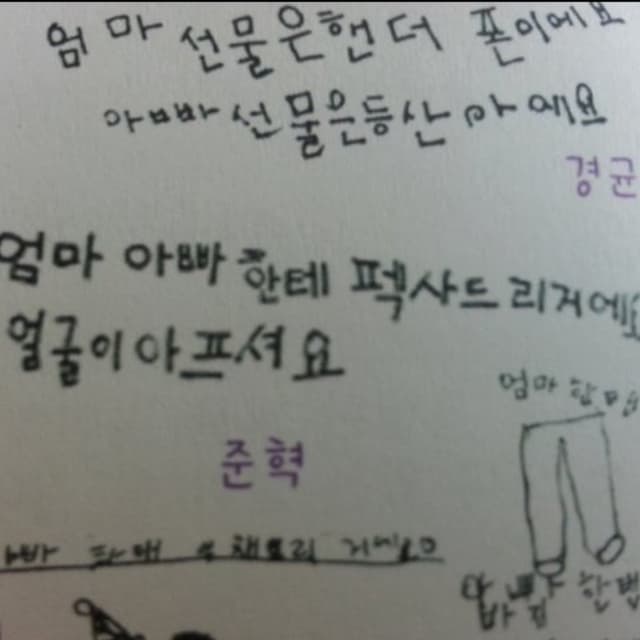 엄마 선물은핸더 폰이에요
아빠선물은등산 마에요
경균
엄마 아빠 한테 펙사드리거에요
얼굴이아프셔요
준혁
엄마 한
바지 한벌